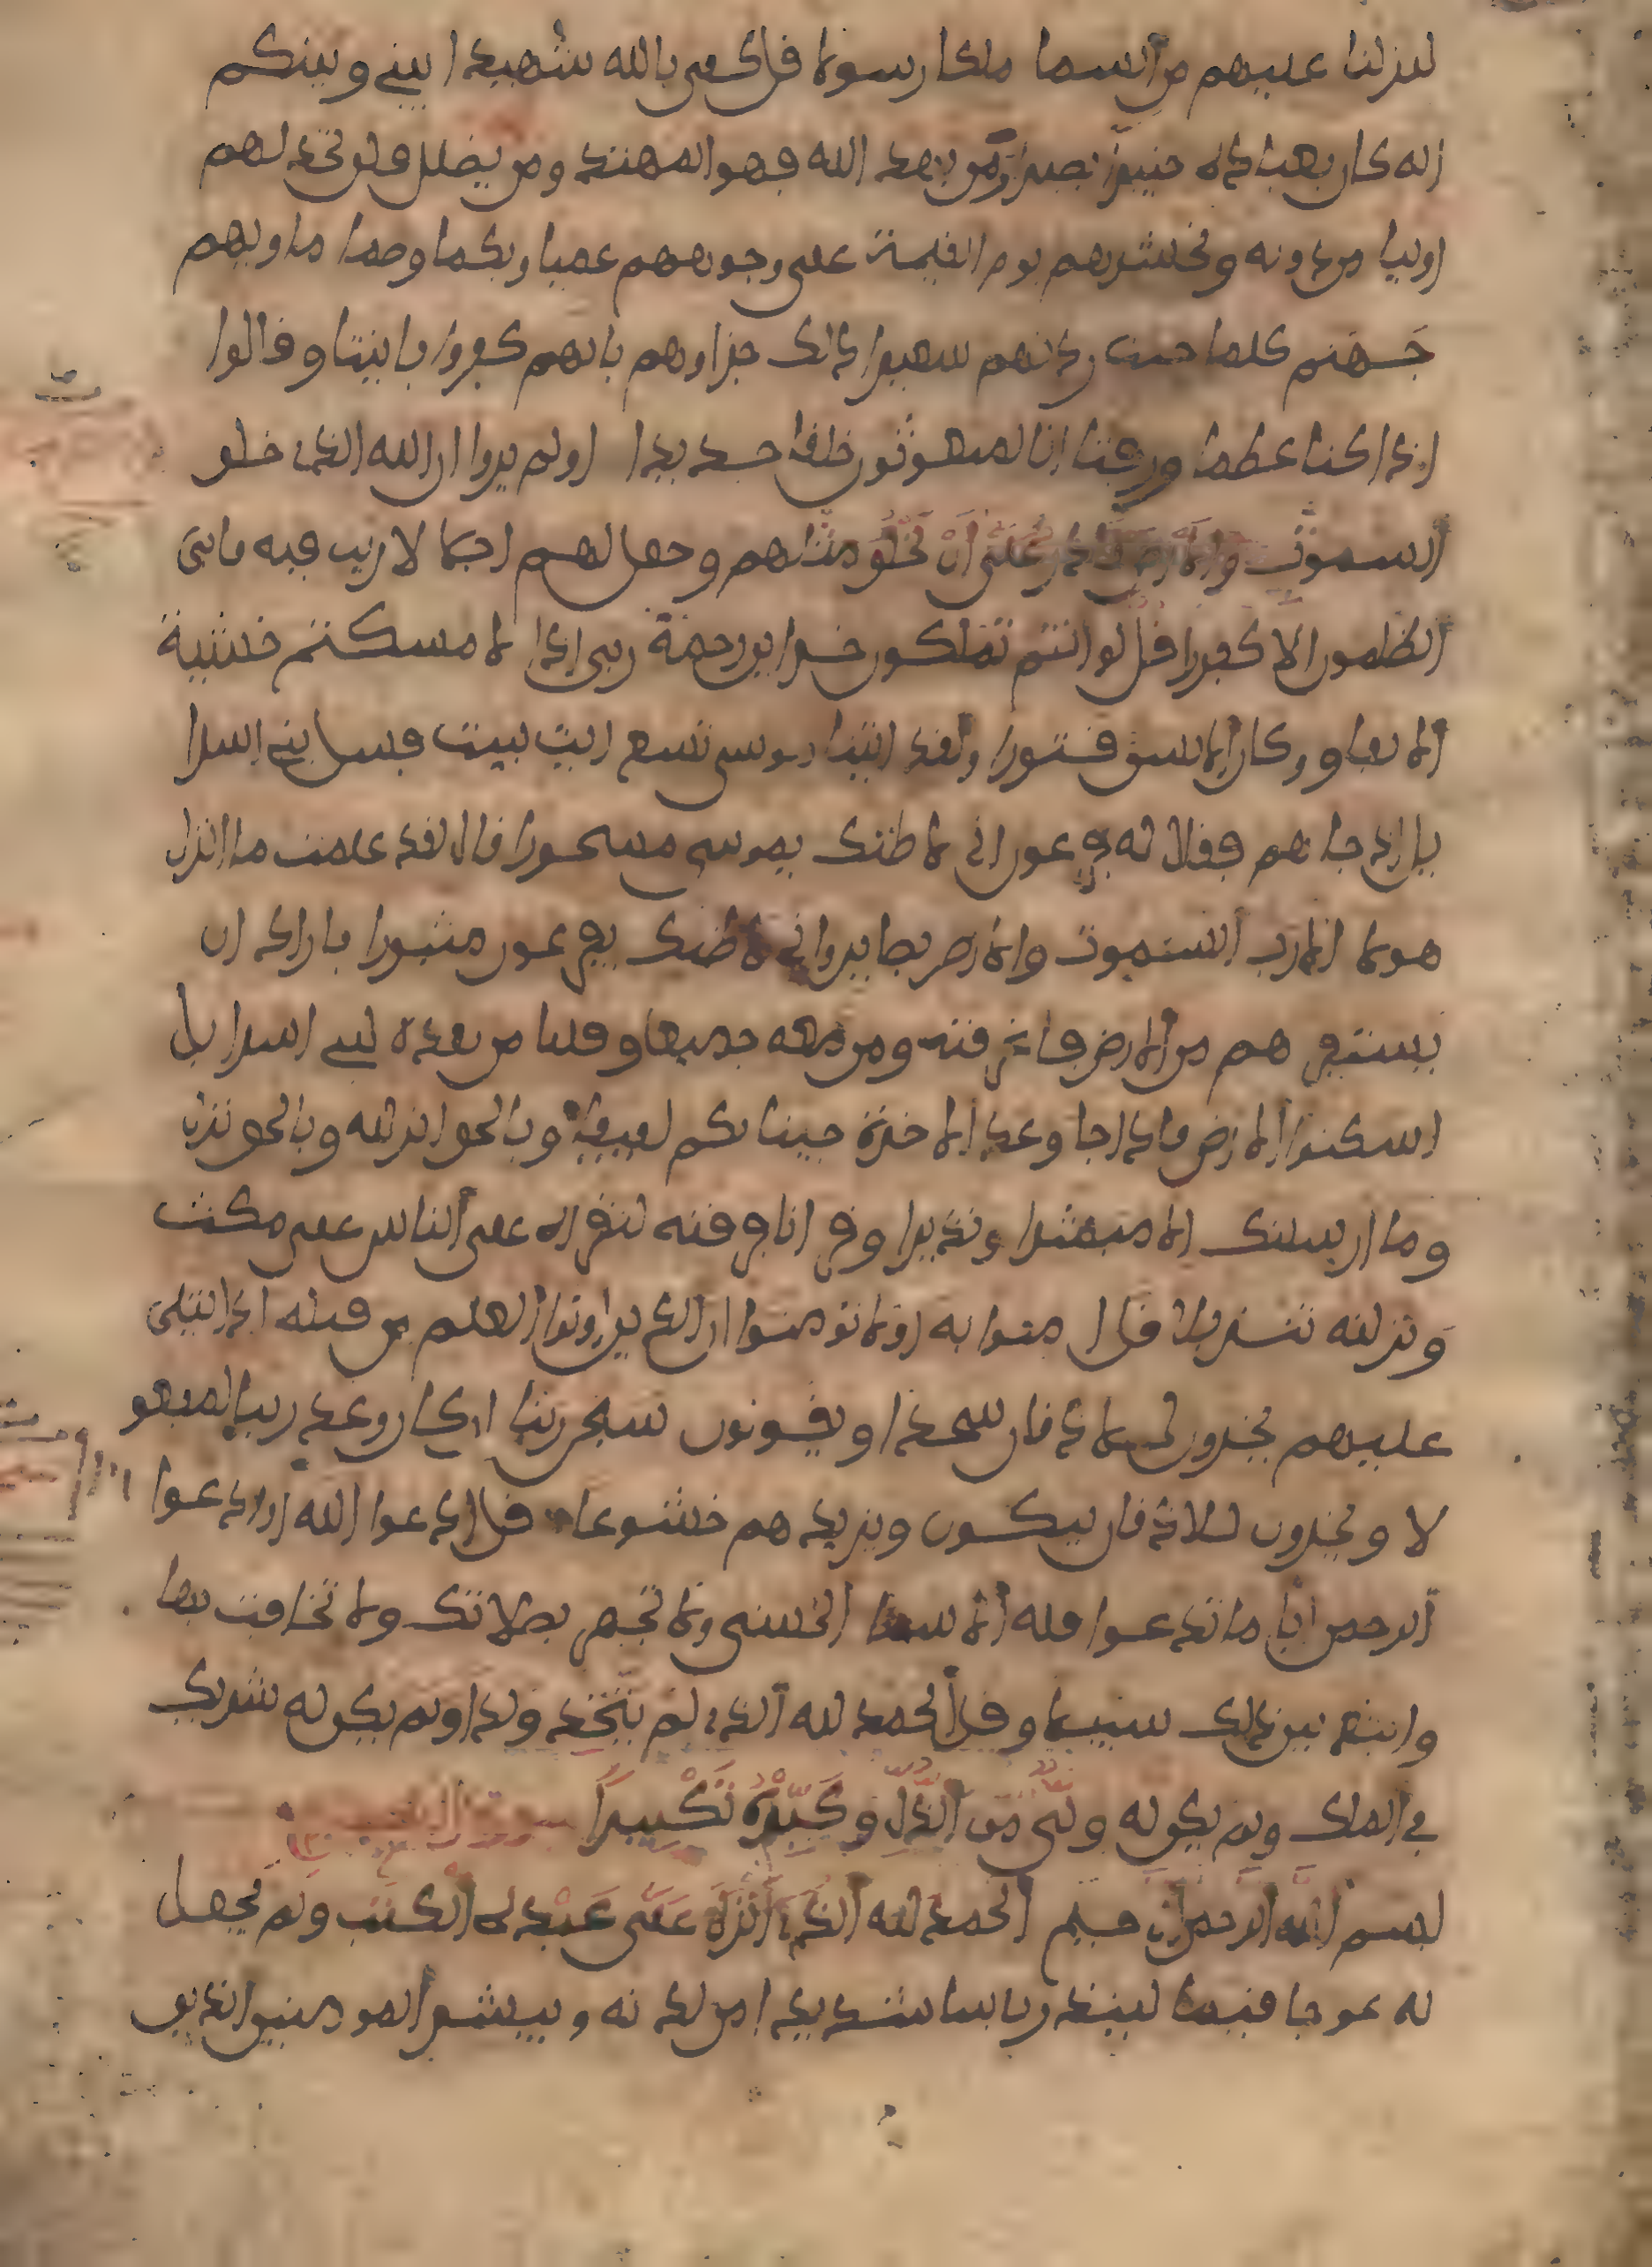 لنزلنا عليهم من السما ملكا رسولا فل كفى بالله شهيدا بيني وبينكم
انه كان بعباده خبيرا بصيرا ومن يهد الله فهو المهتد ومن يضلل فلن تجد لهم
اوليا من دونه ونحشرهم يوم القيمة على وجوههم عميا وبكما وصما ماويهم
جهنم كلما خبت زدنهم سعيرا ذلك جزاوهم بانهم كفروا بايتنا وقالوا
اذا كنا عظما ورفتا انا لمبعوثون خلقا جديدا اولم يروا ان الله الذى خلق
السموت والارض قادر على ان يخلق مثلهم وجعل لهم اجلا لا ريب فيه فابى
الظلمون الا كفورا قل لو انتم تملكون خزاين رحمة ربى اذا لامسكتم خشية
الانفاق وكان الانسن قتورا ولقد اتينا موسى تسع ايت بينت فسل بني اسرا
يل اذ جاهم فقال له فرعون اني لاظنك يموسى مسحورا قال لقد علمت ما انزل
هولا الا رب السموت والارض بصاير واني لاظنك يفرعون مثبورا فاراد ان
يستفزهم من الارض فاغرقنه ومن معه جميعا وقلنا من بعده لبني اسرايل
اسكنوا الارض فاذا جا وعد الاخرة جينا بكم لفيفا وبالحق انزلنه وبالحق نزل
وما ارسلنك الا مبشرا ونذيرا وقرانا فرقنه لتقراه على الناس على مكث
ونزلنه تنزيلا قل امنوا به اولا تومنوا ان الذين اوتوا العلم من قبله اذا يتلى
عليهم يخرون للاذقان سجدا ويقولون سبحن ربنا ان كان وعد ربنا لمفعو
لا ويخرون للاذقان يبكون ويزيدهم خشوعا قل ادعوا الله او ادعوا
الرحمن ايا ما تدعوا فله الاسما الحسنى ولا تجهر بصلاتك ولا تخافت بها
وابتغ بين ذلك سبيلا وقل الحمد لله الذى لم يتخذ ولدا ولم يكن له شريك
في الملك ولم يكن له ولى من الذل وكبره تكبيرا
بسم الله الرحمن الرحيم الحمد لله الذى انزل على عبده الكتب ولم يجعل
له عوجا قيما لينذر باسا شديدا من لدنه ويبشر المومنين الذين